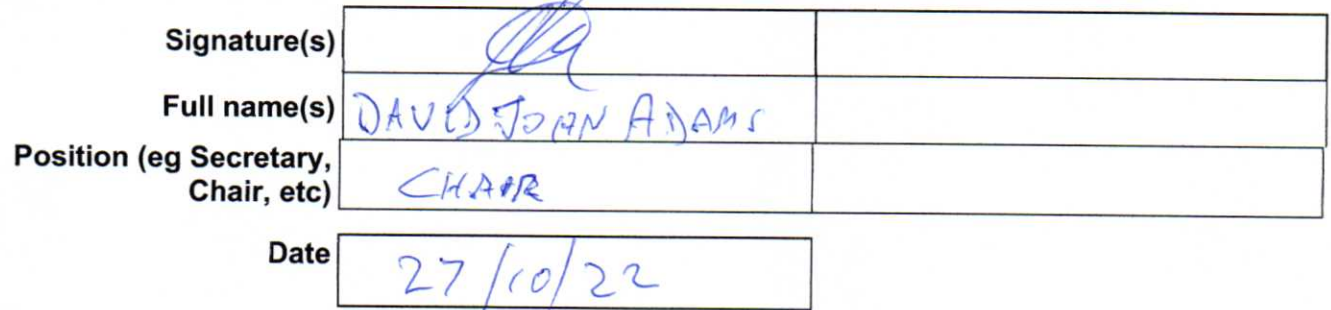 Signature(s)
Full name(s) DAVID JOHN ADAMS
Position (eg Secretary,
Chair, etc) CHAIR
Date 27/10/22